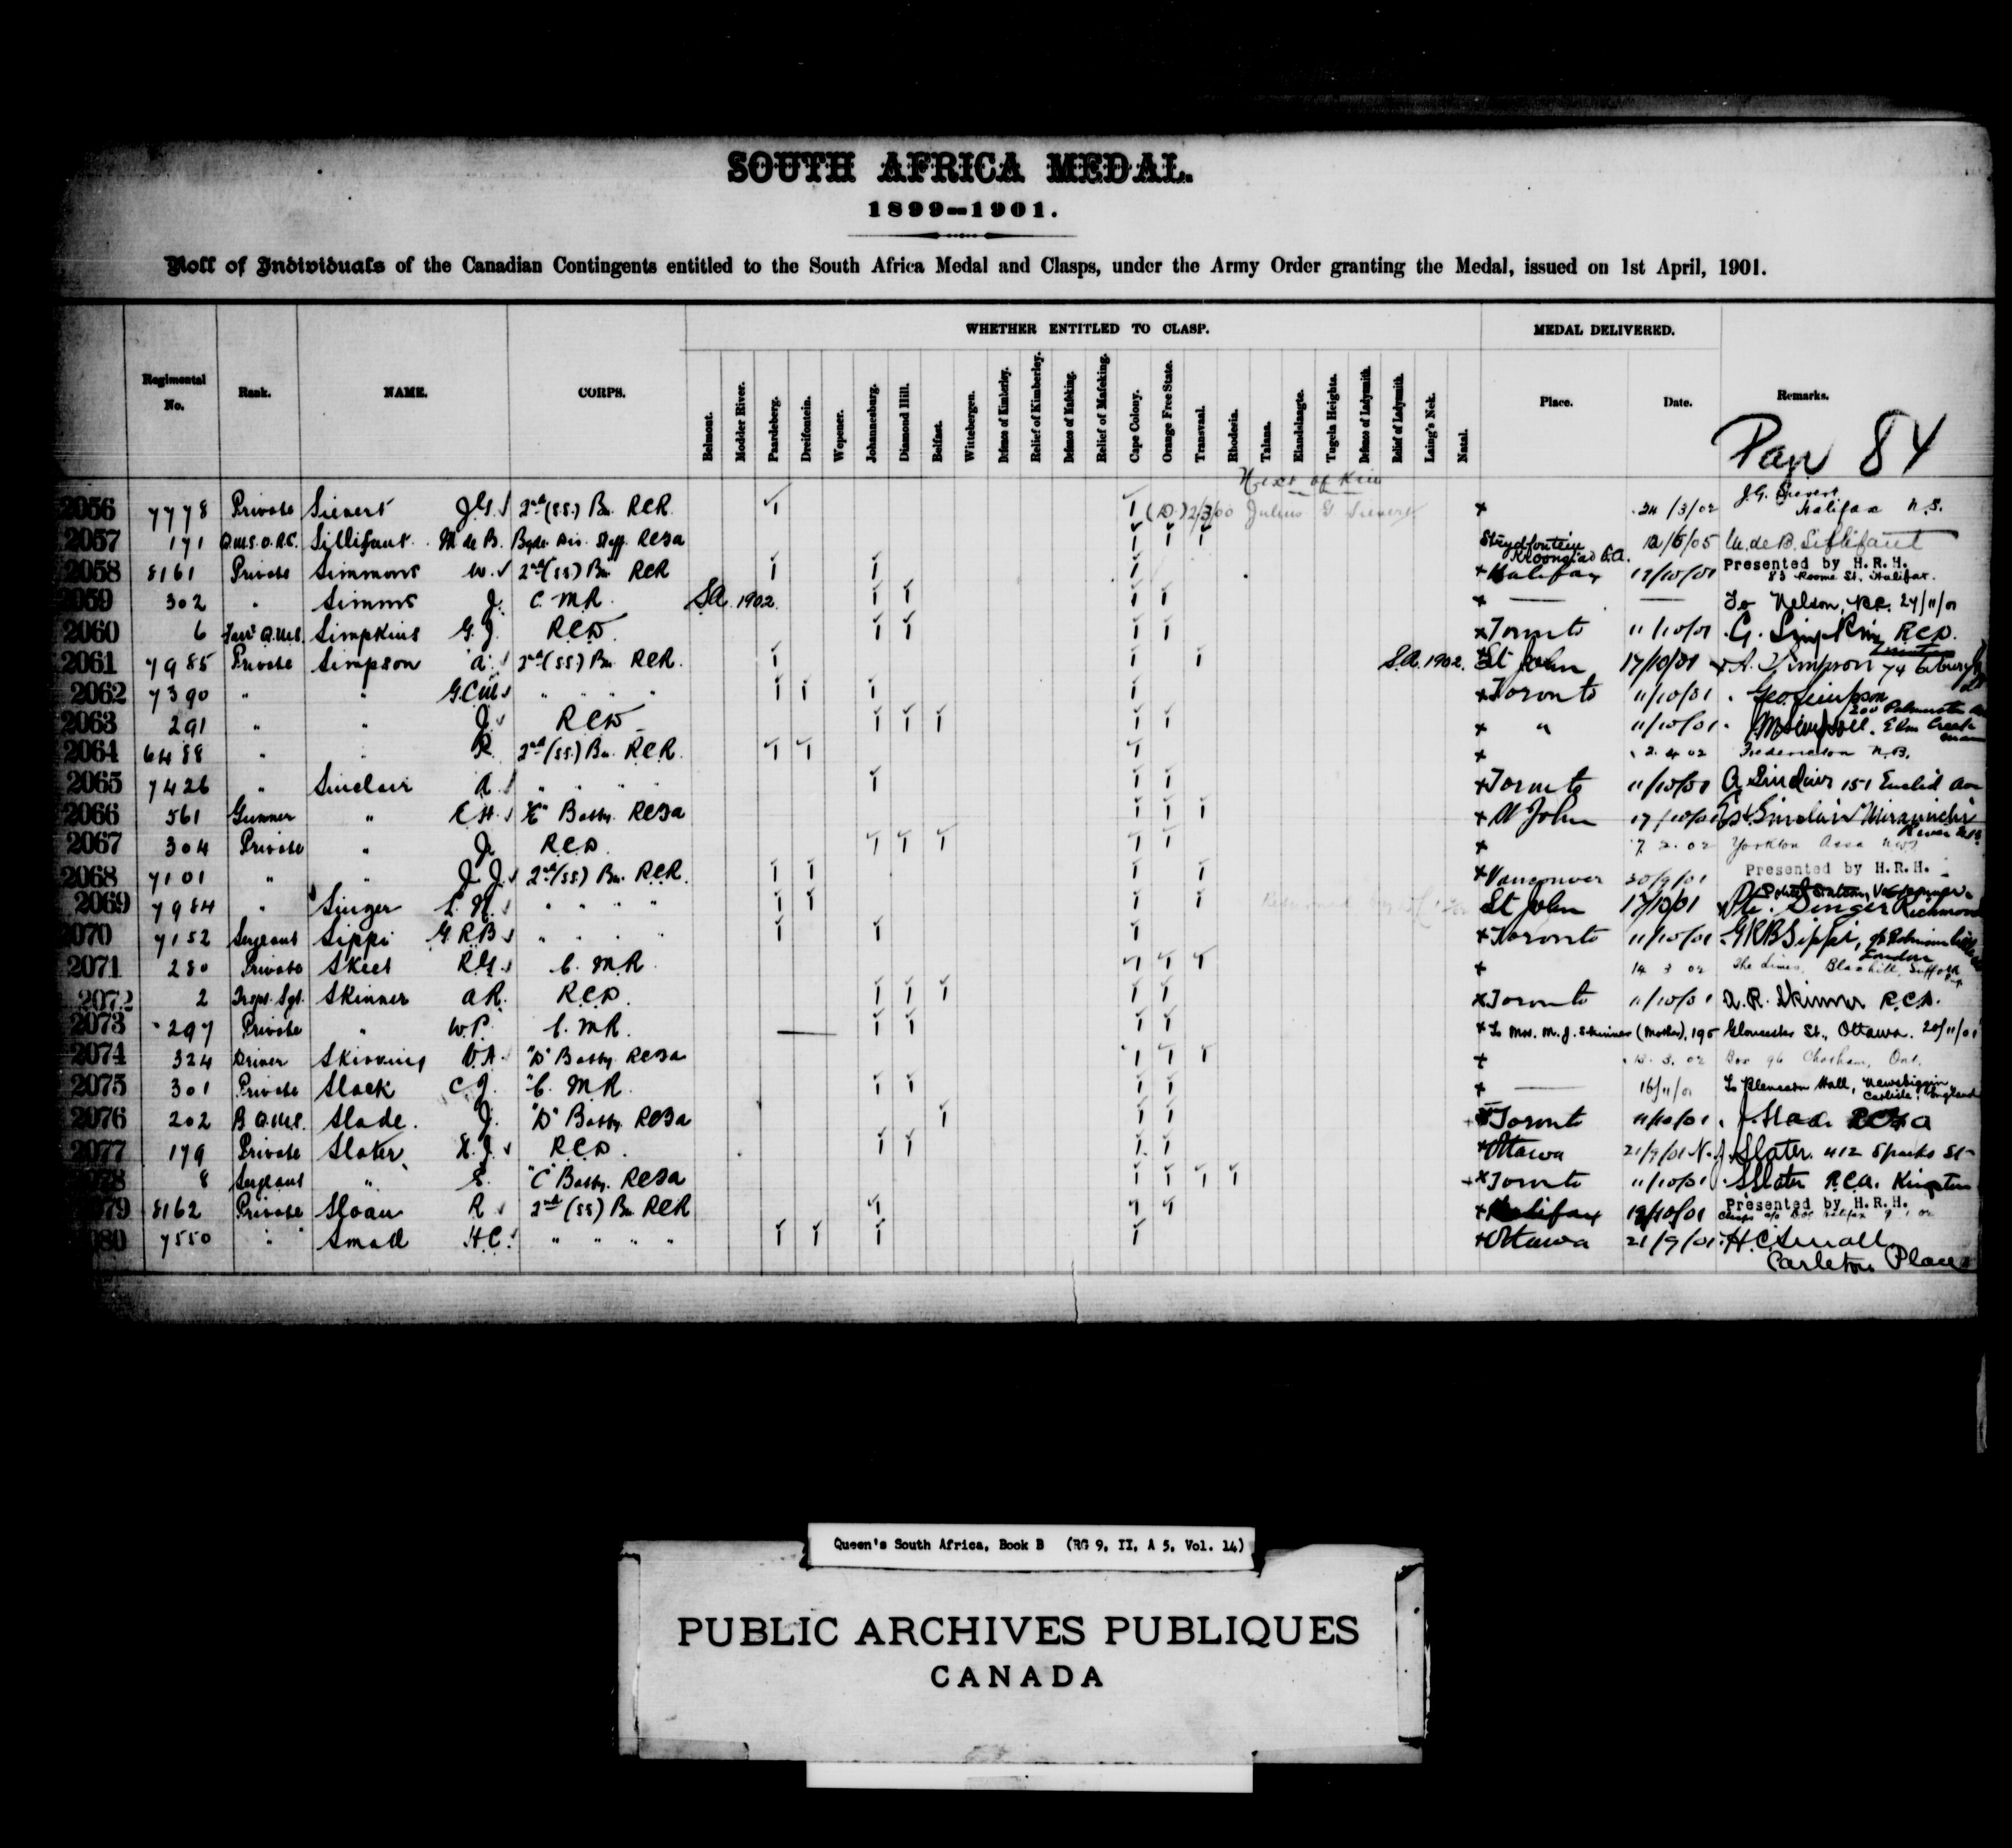 SOUTH AFRICA MEDAL.
1899--1901.
Roll of Individuals of the Canadian Contingents entitled to the South Africa Medal and Clasps, under the Army Order granting the Medal, issued on 1st April, 1901.
WHETHER ENTITLED TO CLASP. MEDAL DELIVERED.
Regimental No. Rank. NAME. CORPS. Belmont. Modder River. Paardeberg. Dreifontein. Wepener. Johannesburg. Diamond Hill. Belfast. Wittebergen. Defence of Kimberley. Relief of Kimberley. Defence of Mafeking. Relief of Mafeking. Cape Colony. Orange Free State. Transvaal. Rhodesia. Talana. Elandslaagte. Tugela Heights. Defence of Ladysmith. Relief of Ladysmith. Laing's Nek. Natal. Place. Date. Remarks.
Page 84
Next of Kin
2056 7778 Private Sievert J.G. 2nd (SS.) Bn. RCR. 1 1 (D.) 2/3/00 Julius G Sievert x 24/3/02 J.G. Sievert Halifax N.S.
2057 171 Q.M.S. O.R.C. Sillifant M de B. Bgde Div. Staff RCFA 1 1 1 Strydfontein Kroonstad S.A. 12/6/05 M. de B. Sillifant
2058 8161 Private Simmons W. 2nd (SS) Bn RCR 1 1 1 x Halifax 19/10/01 Presented by H. R. H. 83 Roome St. Halifax.
2059 302 " Simms J. C. M.R. S.A. 1902. 1 1 1 1 x — — To Nelson, B.C. 24/11/01
2060 6 Farr Q.M.S. Simpkins G.J. RCD. 1 1 1 1 x Toronto 11/10/01 G. Simpkins RCD.
2061 7985 Private Simpson A. 2nd (SS) Bn. RCR. 1 1 1 S.A. 1902. x St John 17/10/01 A. Simpson 74
2062 7390 " " G.C.M. " " " " 1 1 1 1 x Toronto 11/10/01 Geo Simpson 200 Palmerston Av
2063 291 " " J. RCD 1 1 1 1 1 x " 11/10/01 Elm Creek Man
2064 6488 " " R. 2nd (SS.) Bn. RCR. 1 1 1 x 2. 4. 02 Fredericton N.B.
2065 7426 " Sinclair A. " " " " 1 1 1 x Toronto 11/10/01 A Sinclair 151 Euclid Ave
2066 561 Gunner " E.H. "E" Batty. RCFA 1 1 1 x St John 17/10/01 Sinclair Miramichi River N.B.
2067 304 Private " J. RCD. 1 1 1 1 1 x 7. 2. 02 Yorkton Assa NWT
2068 7101 " " J.J. 2nd (SS) Bn. RCR. 1 1 1 1 x Vancouver 30/9/01 Presented by H. R. H.
2069 7984 " Singer " " " " 1 1 1 1 St John 17/10/01 Singer Richmond
2070 7152 Sergeant Sippi G.R.B. " " " " 1 1 1 x Toronto 11/10/01 GRB Sippi, London
2071 280 Private Skeet R.G. C. M.R. 1 1 1 x 14 3 02 The Limes, Blaxhill, Suffolk
2072 2 Tropr. Sgt. Skinner A.R. RCD. 1 1 1 1 1 x Toronto 11/10/01 A. R. Skinner R.C.D.
2073 297 Private " W.P. C. M.R. — 1 1 1 1 x To Mrs. M. J. Skinner (Mother), 195 Gloucester St., Ottawa. 20/11/01
2074 324 Driver Skirving V.A. "D" Batty. RCFA 1 1 1 x 13. 3. 02 Box 96 Chatham, Ont.
2075 301 Private Slack C.J. C. M.R. 1 1 1 1 x — 16/11/01 To Blencarn Hall, Newbiggin Carlisle, England
2076 202 B Q.M.S. Slade. J. "D" Batty. RCFA 1 1 1 x Toronto 11/10/01 J. Slade RCFA
2077 179 Private Slater N.J. RCD. 1 1 1 1 x Ottawa 21/9/01 N.J. Slater. 412 Sparks St
2078 8 Sergeant " S. "C" Batty. RCFA 1 1 1 1 x Toronto 11/10/01 S Slater RCA. Kingston
2079 8162 Private Sloan R 2nd (SS) Bn RCR 1 1 1 x Halifax 19/10/01 Presented by H. R. H.
2080 7550 " Small H.C. " " " " 1 1 1 1 x Ottawa 21/9/01 H.C. Small Carleton Place
Queen's South Africa, Book B (RG 9, II, A 5, Vol. 14)
PUBLIC ARCHIVES PUBLIQUES
CANADA